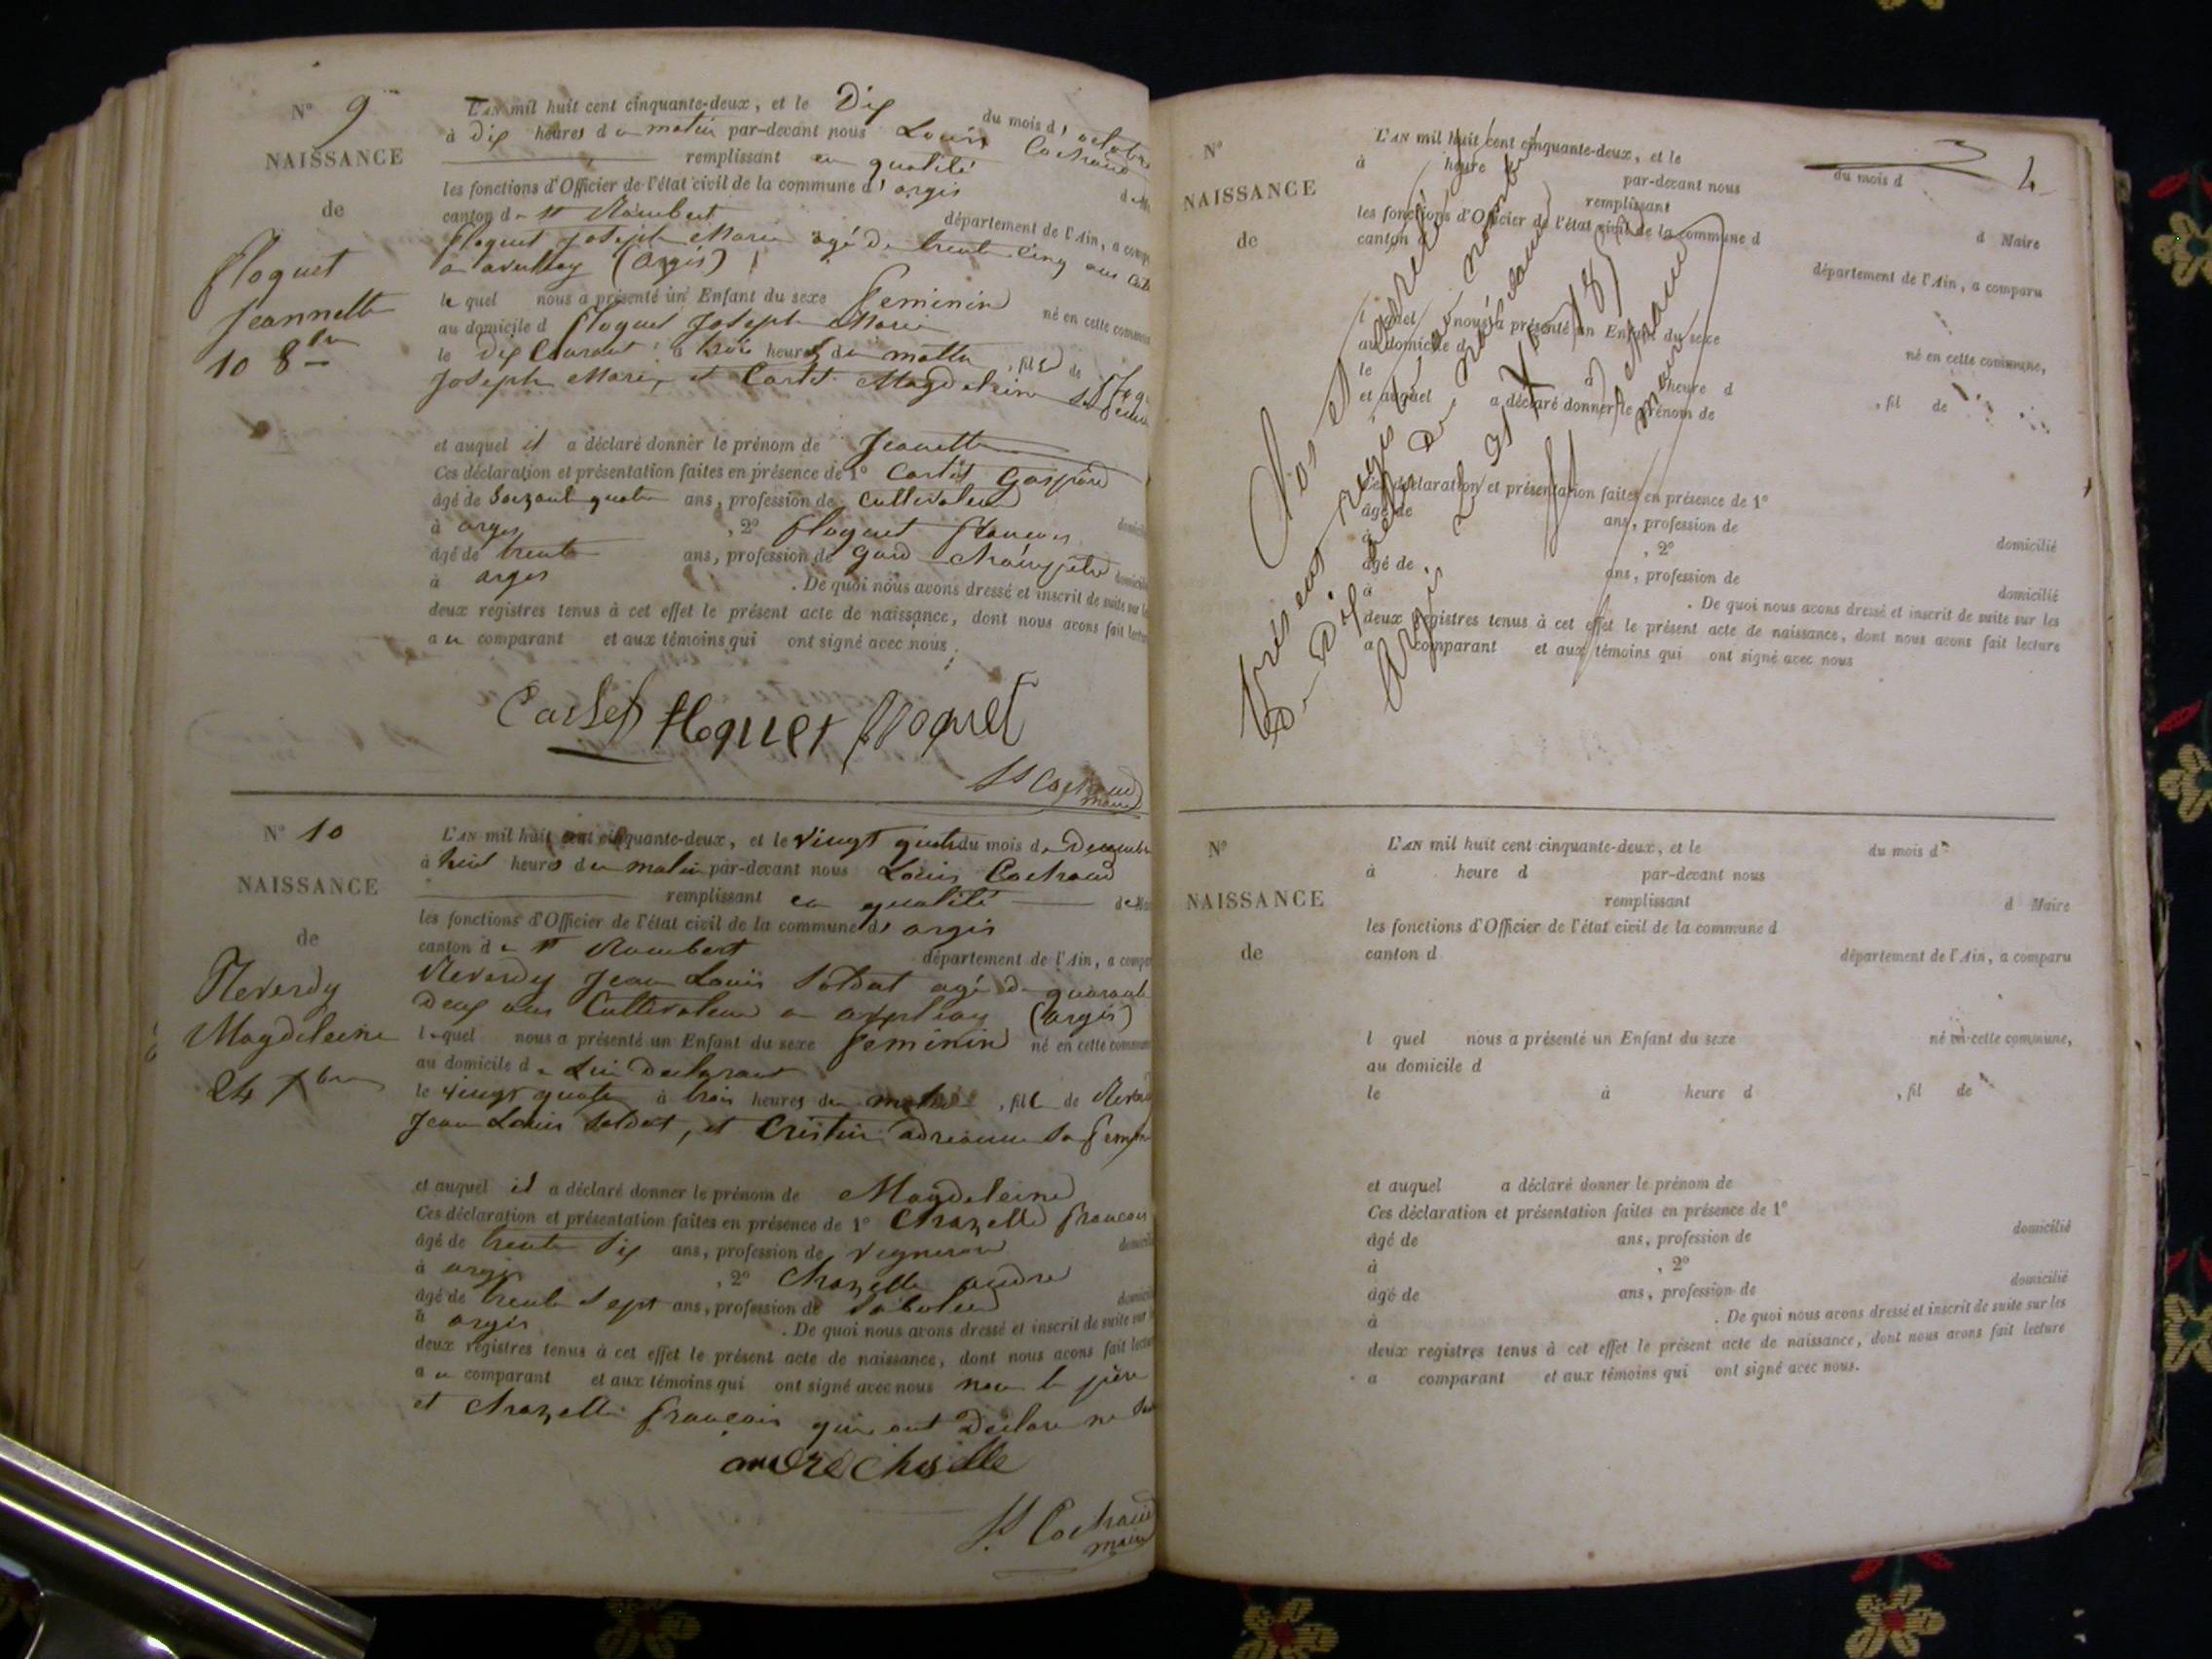 N° 9
NAISSANCE
de
floquet
Jeannette
10 8bre
L'AN mil huit cent cinquante-deux, et le Dix du mois d'octobre
à dix heures du matin par-devant nous Louis Cochaud
remplissant en qualité de
les fonctions d'Officier de l'état civil de la commune d'argis
canton de st Rambert département de l'Ain, a comp
floquet Joseph Marie agé de trente cinq ans
(argis)
le quel nous a présenté un Enfant du sexe feminin né en cette commune
au domicile d floquet Joseph Marie
le dix Courant à trois heures du matin, fille de floq
Joseph Marie, et Cortet Magdeleine sa femme
et auquel il a déclaré donner le prénom de Jeanette
Ces déclaration et présentation faites en présence de 1° Gaspard
âgé de soizante quatre ans, profession de Cultivateur
à argis, 2° floquet francois
âgé de trente ans, profession de Gard Champêtre domicilié
à argis. De quoi nous avons dressé et inscrit de suite sur le
deux registres tenus à cet effet le présent acte de naissance, dont nous avons fait lecture
au comparant et aux témoins qui ont signé avec nous
floquet floquet
Ls Cochaud
maire
N° 10
NAISSANCE
de
Reverdy
Magdeleine
24 Xbre
L'AN mil huit cent cinquante-deux, et le vingt quatre du mois de Decembre
à huit heures du matin par-devant nous Louis Cochaud
remplissant en qualité de
les fonctions d'Officier de l'état civil de la commune d'argis
canton de st Rambert département de l'Ain, a comp
Reverdy Jean Louis Soldat agé de quarante
deux ans Cultivateur a (argis)
lequel nous a présenté un Enfant du sexe feminin né en cette commune
au domicile de Lui declarant
le vingt quatre à trois heures du matin, fille de Reverdy
Jean Louis Soldat, et Cristin adrienne sa femme
et auquel il a déclaré donner le prénom de Magdeleine
Ces déclaration et présentation faites en présence de 1° Chazelle francois
âgé de trente six ans, profession de vigneron domicilié
à argis, 2° Chazelle andre
âgé de trente sept ans, profession de Sabotier domicilié
à argis. De quoi nous avons dressé et inscrit de suite sur
deux registres tenus à cet effet le présent acte de naissance, dont nous avons fait lecture
au comparant et aux témoins qui ont signé avec nous non le père
et Chazelle françois qui ont Déclare ne
andre Chaselle
Ls Cochaud
maire
4
N°
NAISSANCE
de
L'AN mil huit cent cinquante-deux, et le du mois d
à heure d par-devant nous
remplissant d Maire
les fonctions d'Officier de l'état civil de la commune d
canton d département de l'Ain, a comparu
l quel nous a présenté un Enfant du sexe né en cette commune,
au domicile d
le à heure d, fil de
et auquel a déclaré donner le prénom de
Ces déclaration et présentation faites en présence de 1°
âgé de ans, profession de domicilié
à, 2°
âgé de ans, profession de domicilié
à. De quoi nous avons dressé et inscrit de suite sur les
deux registres tenus à cet effet le présent acte de naissance, dont nous avons fait lecture
a comparant et aux témoins qui ont signé avec nous
Clos et arrêté le
présent registre au nombre
de Dix actes de naissance
Argis le 31 Xbre 185
maire
N°
NAISSANCE
de
L'AN mil huit cent cinquante-deux, et le du mois d
à heure d par-devant nous
remplissant d Maire
les fonctions d'Officier de l'état civil de la commune d
canton d département de l'Ain, a comparu
l quel nous a présenté un Enfant du sexe né en cette commune,
au domicile d
le à heure d, fil de
et auquel a déclaré donner le prénom de
Ces déclaration et présentation faites en présence de 1°
âgé de ans, profession de domicilié
à, 2°
âgé de ans, profession de domicilié
à. De quoi nous avons dressé et inscrit de suite sur les
deux registres tenus à cet effet le présent acte de naissance, dont nous avons fait lecture
a comparant et aux témoins qui ont signé avec nous.